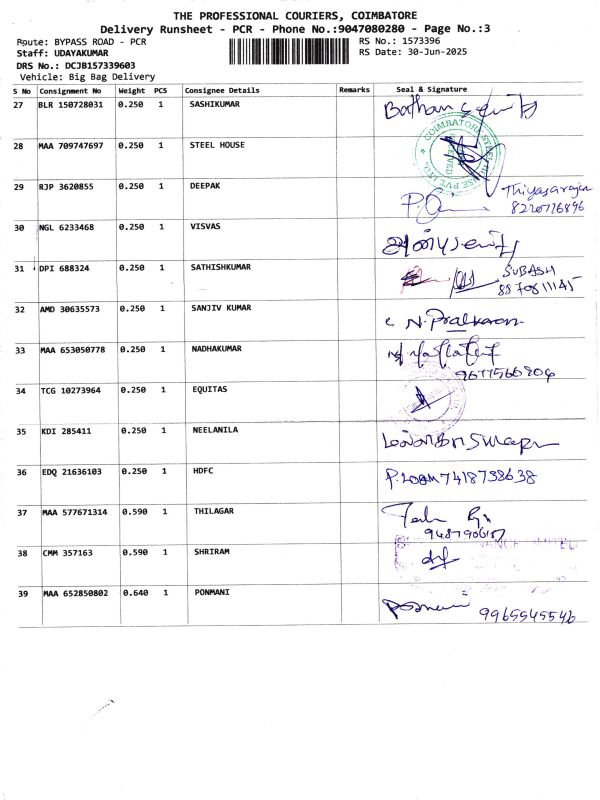 THE PROFESSIONAL COURIERS, COIMBATORE
Delivery Runsheet - PCR - Phone No.:9047080280 - Page No.:3
Route: BYPASS ROAD - PCR
Staff: UDAYAKUMAR
DRS No.: DCJB157339603
Vehicle: Big Bag Delivery
RS No.: 1573396
RS Date: 30-Jun-2025
S No Consignment No Weight PCS Consignee Details Remarks Seal & Signature
27 BLR 150728031 0.250 1 SASHIKUMAR
28 MAA 709747697 0.250 1 STEEL HOUSE
29 RJP 3620855 0.250 1 DEEPAK Thiyagarajan
8220776896
30 NGL 6233468 0.250 1 VISVAS
31 DPI 688324 0.250 1 SATHISHKUMAR SUBASH
8870811145
32 AMD 30635573 0.250 1 SANJIV KUMAR
33 MAA 653050778 0.250 1 NADHAKUMAR
34 TCG 10273964 0.250 1 EQUITAS
35 KDI 285411 0.250 1 NEELANILA
36 EDQ 21636103 0.250 1 HDFC 7418738638
37 MAA 577671314 0.590 1 THILAGAR
38 CMM 357163 0.590 1 SHRIRAM
39 MAA 652850802 0.640 1 PONMANI 9965545546